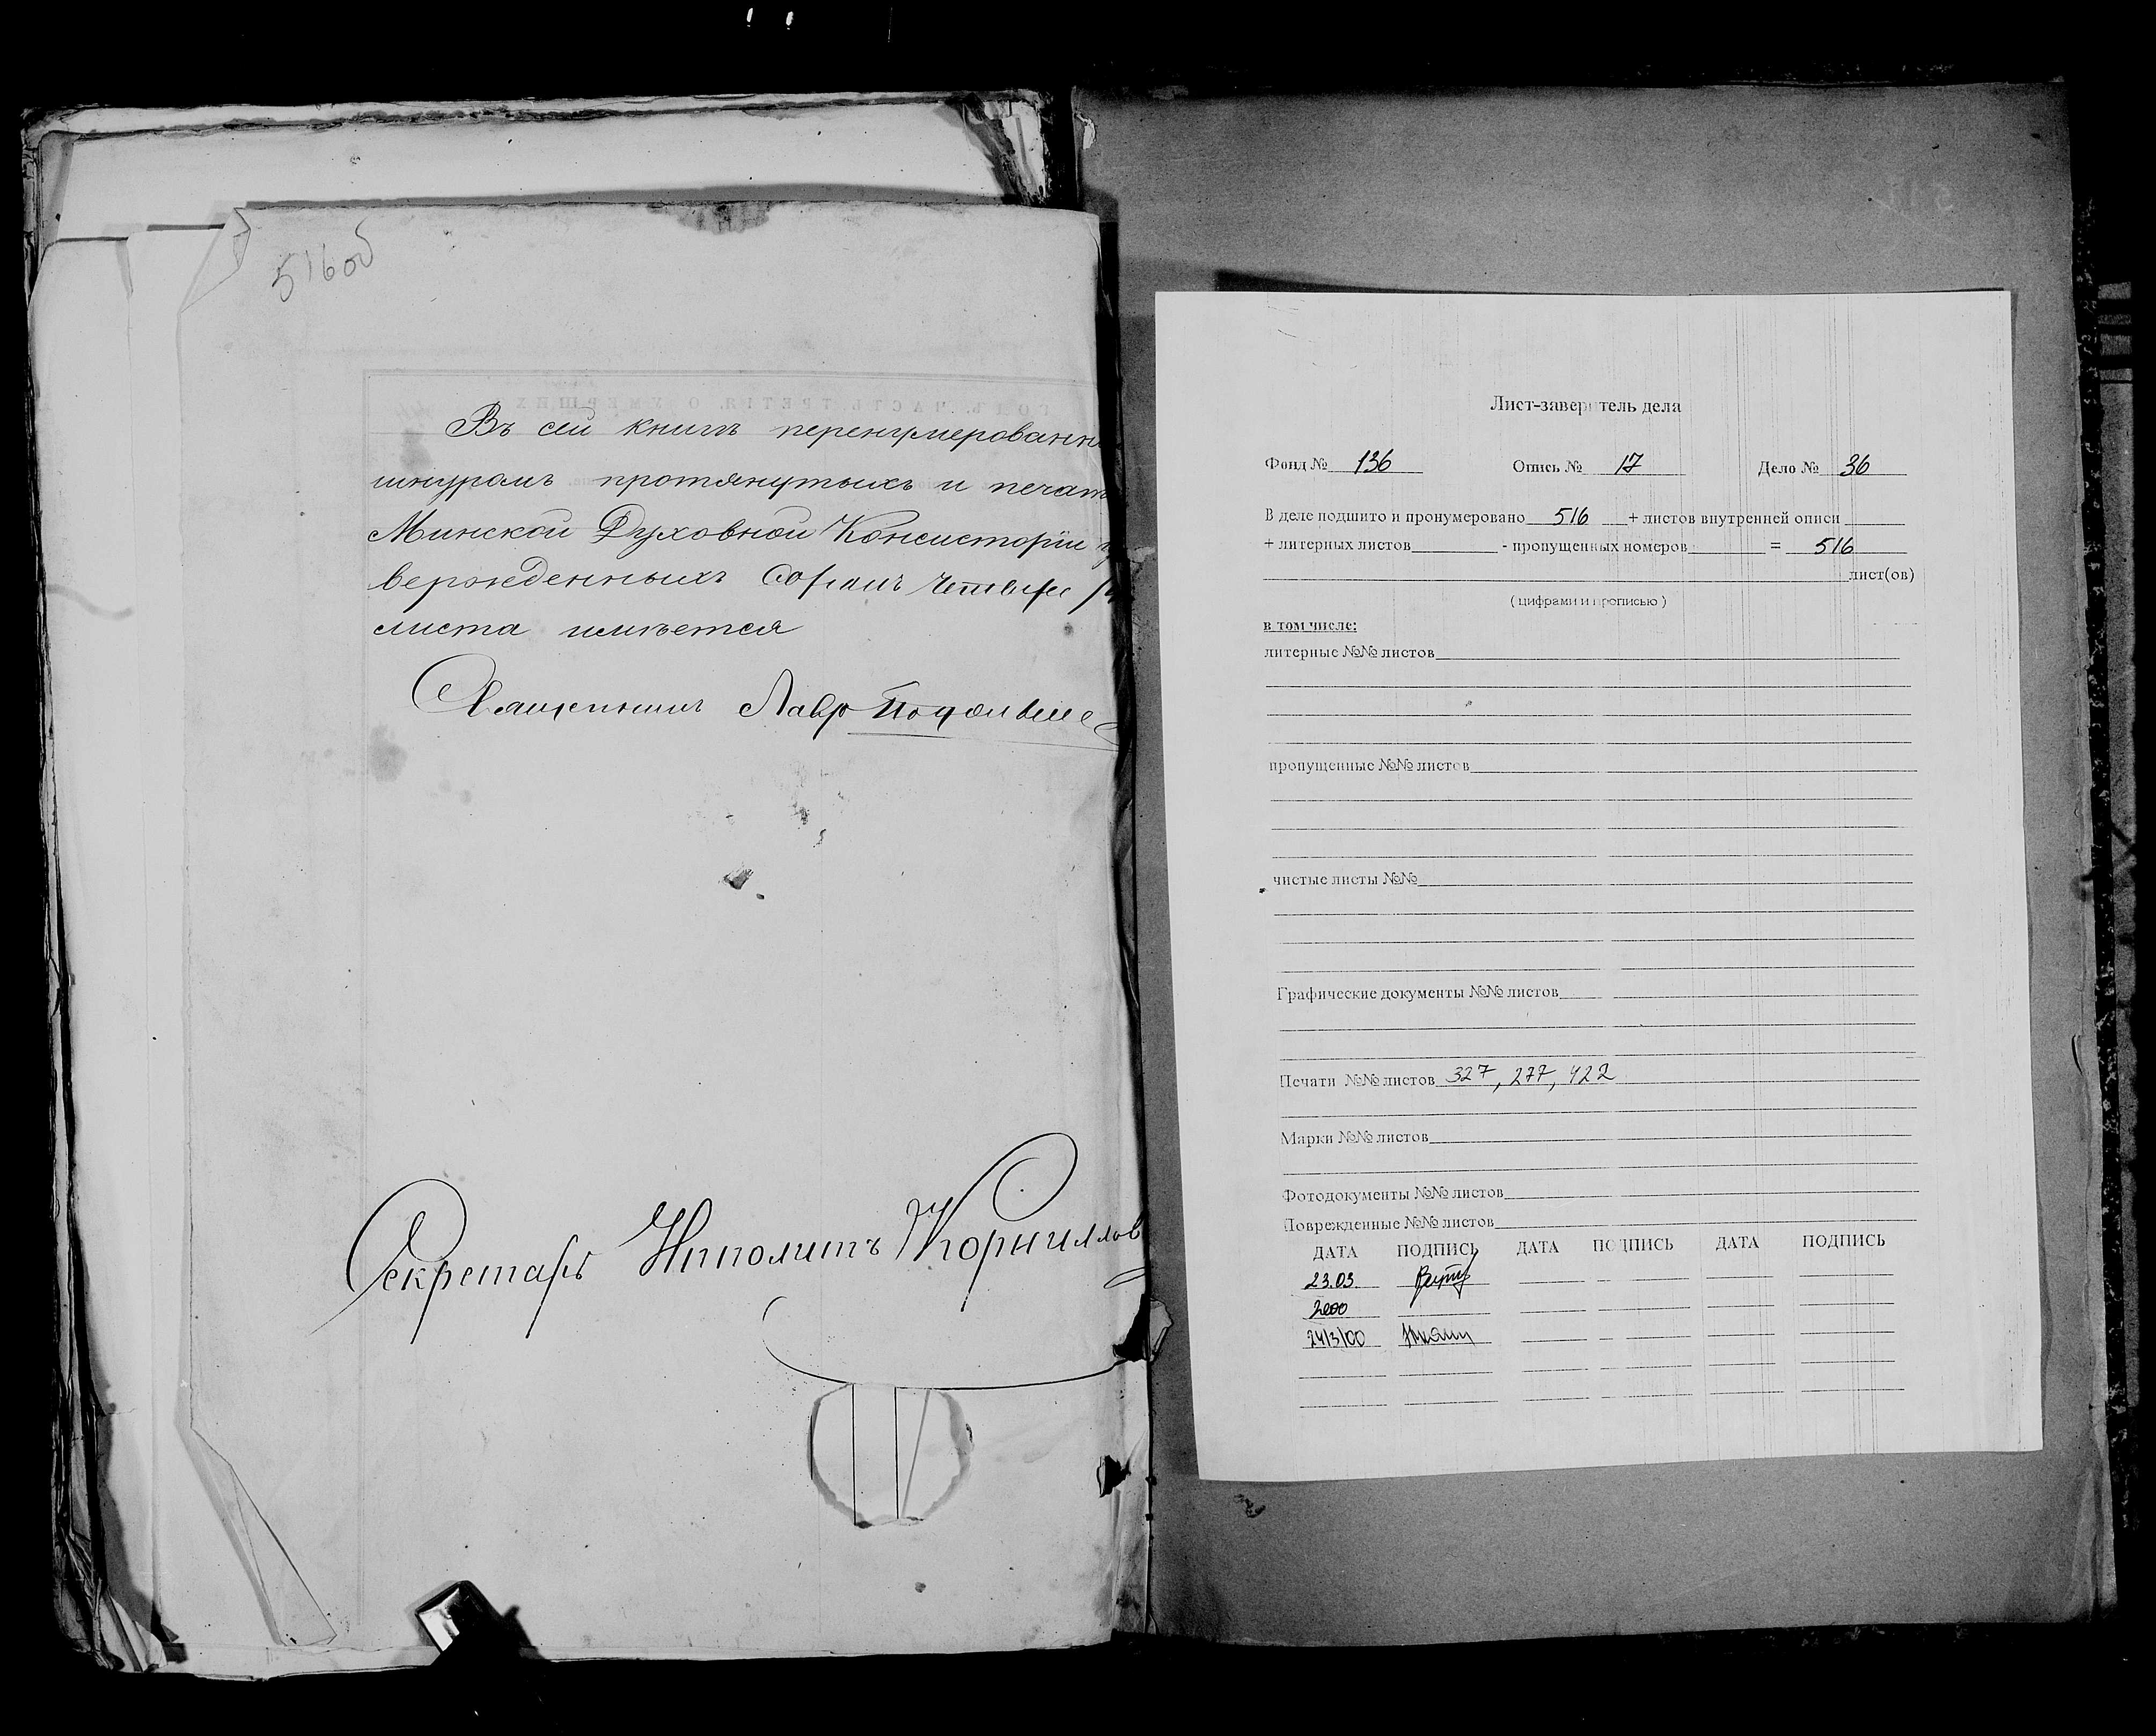 516об
Въ сей книгѣ перенумерованн
шнуромъ протянутыхъ и печат
Минской Духовной Консисторіи
вержденныхъ Сорокъ четыре
листа имѣется
Священникъ Лавр
Секретарь Ипполитъ Корнилов
Лист-заверитель дела
Фонд № 136 Опись № 17 Дело № 36
В деле подшито и пронумеровано 516 + листов внутренней описи
+ литерных листов - пропущенных номеров = 516
лист(ов)
( цифрами и прописью )
в том числе:
литерные №№ листов
пропущенные №№ листов
чистые листы №№
Графические документы №№ листов
Печати №№ листов 327, 277, 422
Марки №№ листов
Фотодокументы №№ листов
Поврежденные №№ листов
ДАТА ПОДПИСЬ ДАТА ПОДПИСЬ ДАТА ПОДПИСЬ
23.03
2000
24/3/00